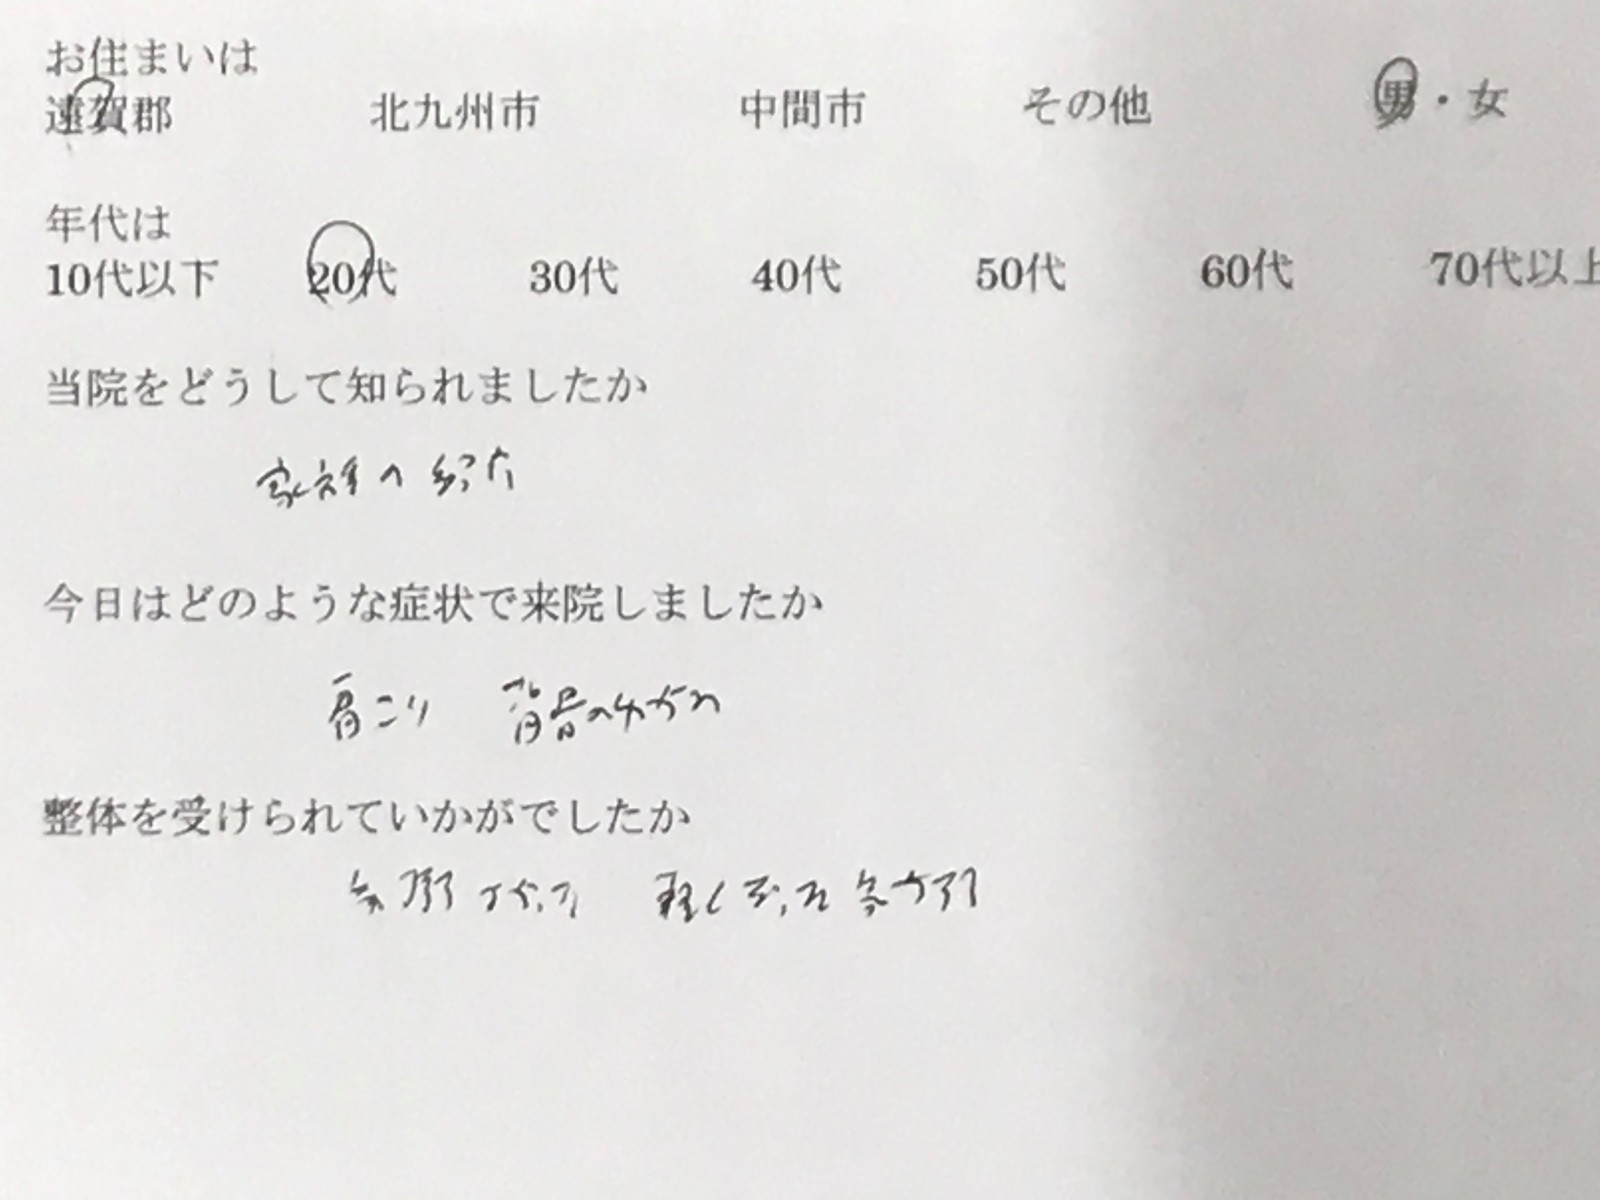 お住まいは
遠賀郡 北九州市 中間市 その他 男・女
年代は
10代以下 20代 30代 40代 50代 60代 70代以上
当院をどうして知られましたか
家族の紹介
今日はどのような症状で来院しましたか
肩こり 背骨のゆがみ
整体を受けられていかがでしたか
軽くなった